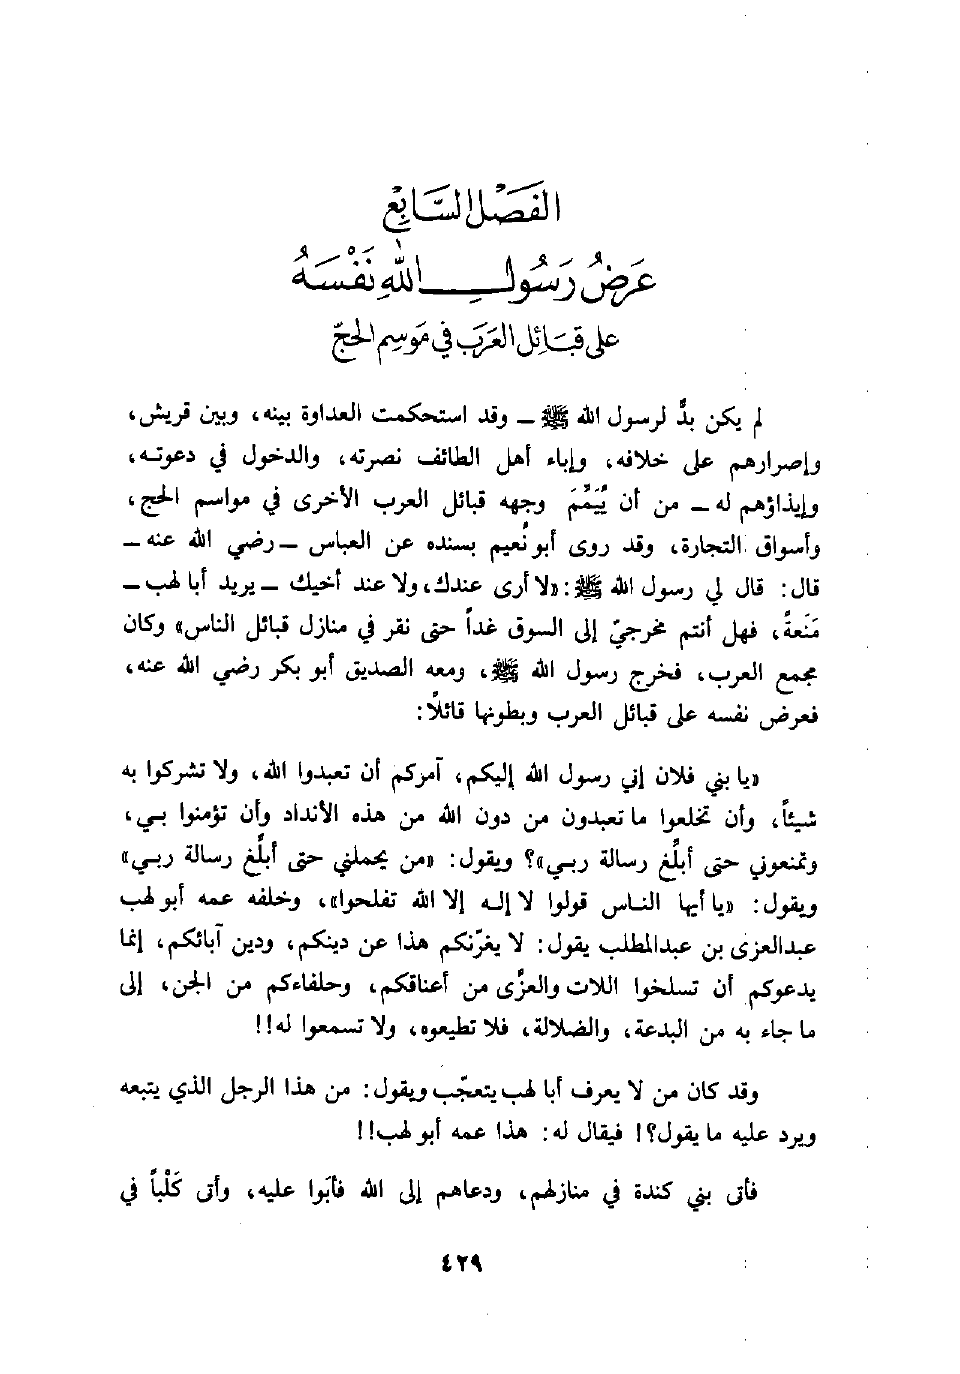 الفَصْلُ السَّابِع
عَرضُ رَسُولِ اللهِ نَفْسَهُ
على قبَائِل العَرَب في مَوسِم الحَجّ
لم يكن بدٌّ لرسول الله ﷺ ــ وقد استحكمت العداوة بينه، وبين قريش،
وإصرارهم على خلافه، وإباء أهل الطائف نصرته، والدخول في دعوته،
وإيذاؤهم له ــ من أن يُيَمِّمَ وجهه قبائل العرب الأخرى في مواسم الحج،
وأسواق التجارة، وقد روى أبو نُعيم بسنده عن العباس ــ رضي الله عنه ــ
قال: قال لي رسول الله ﷺ: «لا أرى عندك، ولا عند أخيك ــ يريد أبا لهب ــ
مَنَعةً، فهل أنتم مخرجيّ إلى السوق غداً حتى نقر في منازل قبائل الناس» وكان
مجمع العرب، فخرج رسول الله ﷺ، ومعه الصديق أبو بكر رضي الله عنه،
فعرض نفسه على قبائل العرب وبطونها قائلاً:
«يا بني فلان إني رسول الله إليكم، آمركم أن تعبدوا الله، ولا تشركوا به
شيئاً، وأن تخلعوا ما تعبدون من دون الله من هذه الأنداد وأن تؤمنوا بـي،
وتمنعوني حتى أبلِّغ رسالة ربـي»؟ ويقول: «من يحملني حتى أبلّغ رسالة ربـي»
ويقول: «يا أيها الناس قولوا لا إله إلا الله تفلحوا»، وخلفه عمه أبو لهب
عبدالعزى بن عبدالمطلب يقول: لا يغرّنكم هذا عن دينكم، ودين آبائكم، إنما
يدعوكم أن تسلخوا اللات والعزَّى من أعناقكم، وحلفاءكم من الجن، إلى
ما جاء به من البدعة، والضلالة، فلا تطيعوه، ولا تسمعوا له!!
وقد كان من لا يعرف أبا لهب يتعجّب ويقول: من هذا الرجل الذي يتبعه
ويرد عليه ما يقول؟! فيقال له: هذا عمه أبو لهب!!
فأتى بني كندة في منازلهم، ودعاهم إلى الله فأبَوا عليه، وأتى كَلْباً في
٤٢٩